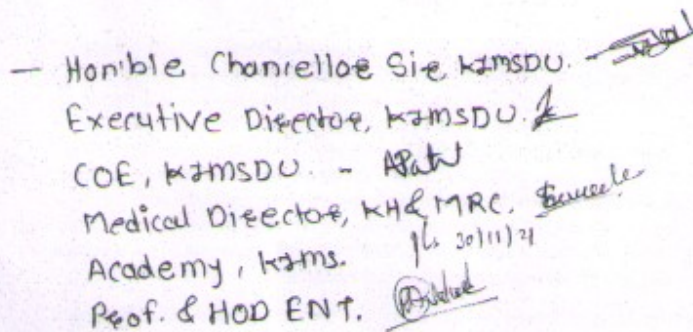 - Hon'ble Chancelloe Sie, KIMSDU. -
Executive Director, KIMSDU.
COE, KIMSDU. -
Medical Director, KH & MRC.
Academy, KIMS. 30/11/21
Prof. & HOD ENT.